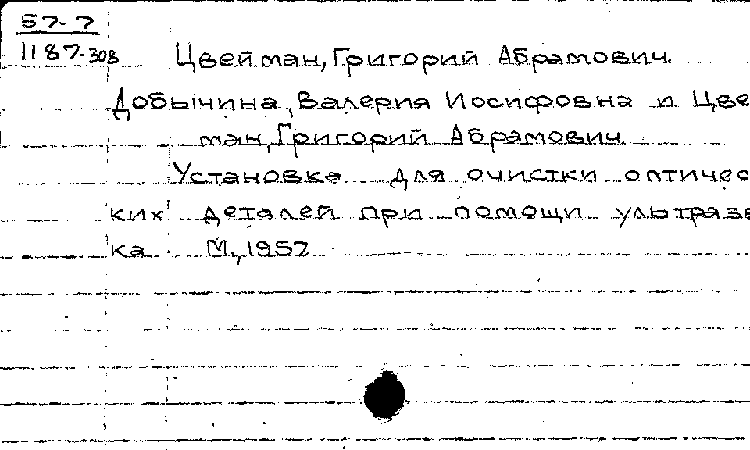 57-7
1187-308
Цвейман, Григорий Абрамович.
Добычина, Валерия Иосифовна и Цве
ман, Григорий Абрамович.
Установка для очистки оптичес
ких деталей при помощи ультразв
ка М., 1957